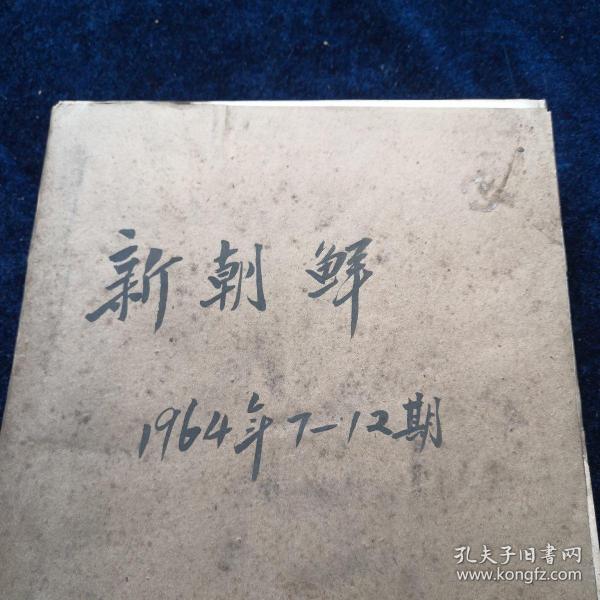 新朝鲜
1964年7-12期
孔夫子旧书网
www.kongfz.com